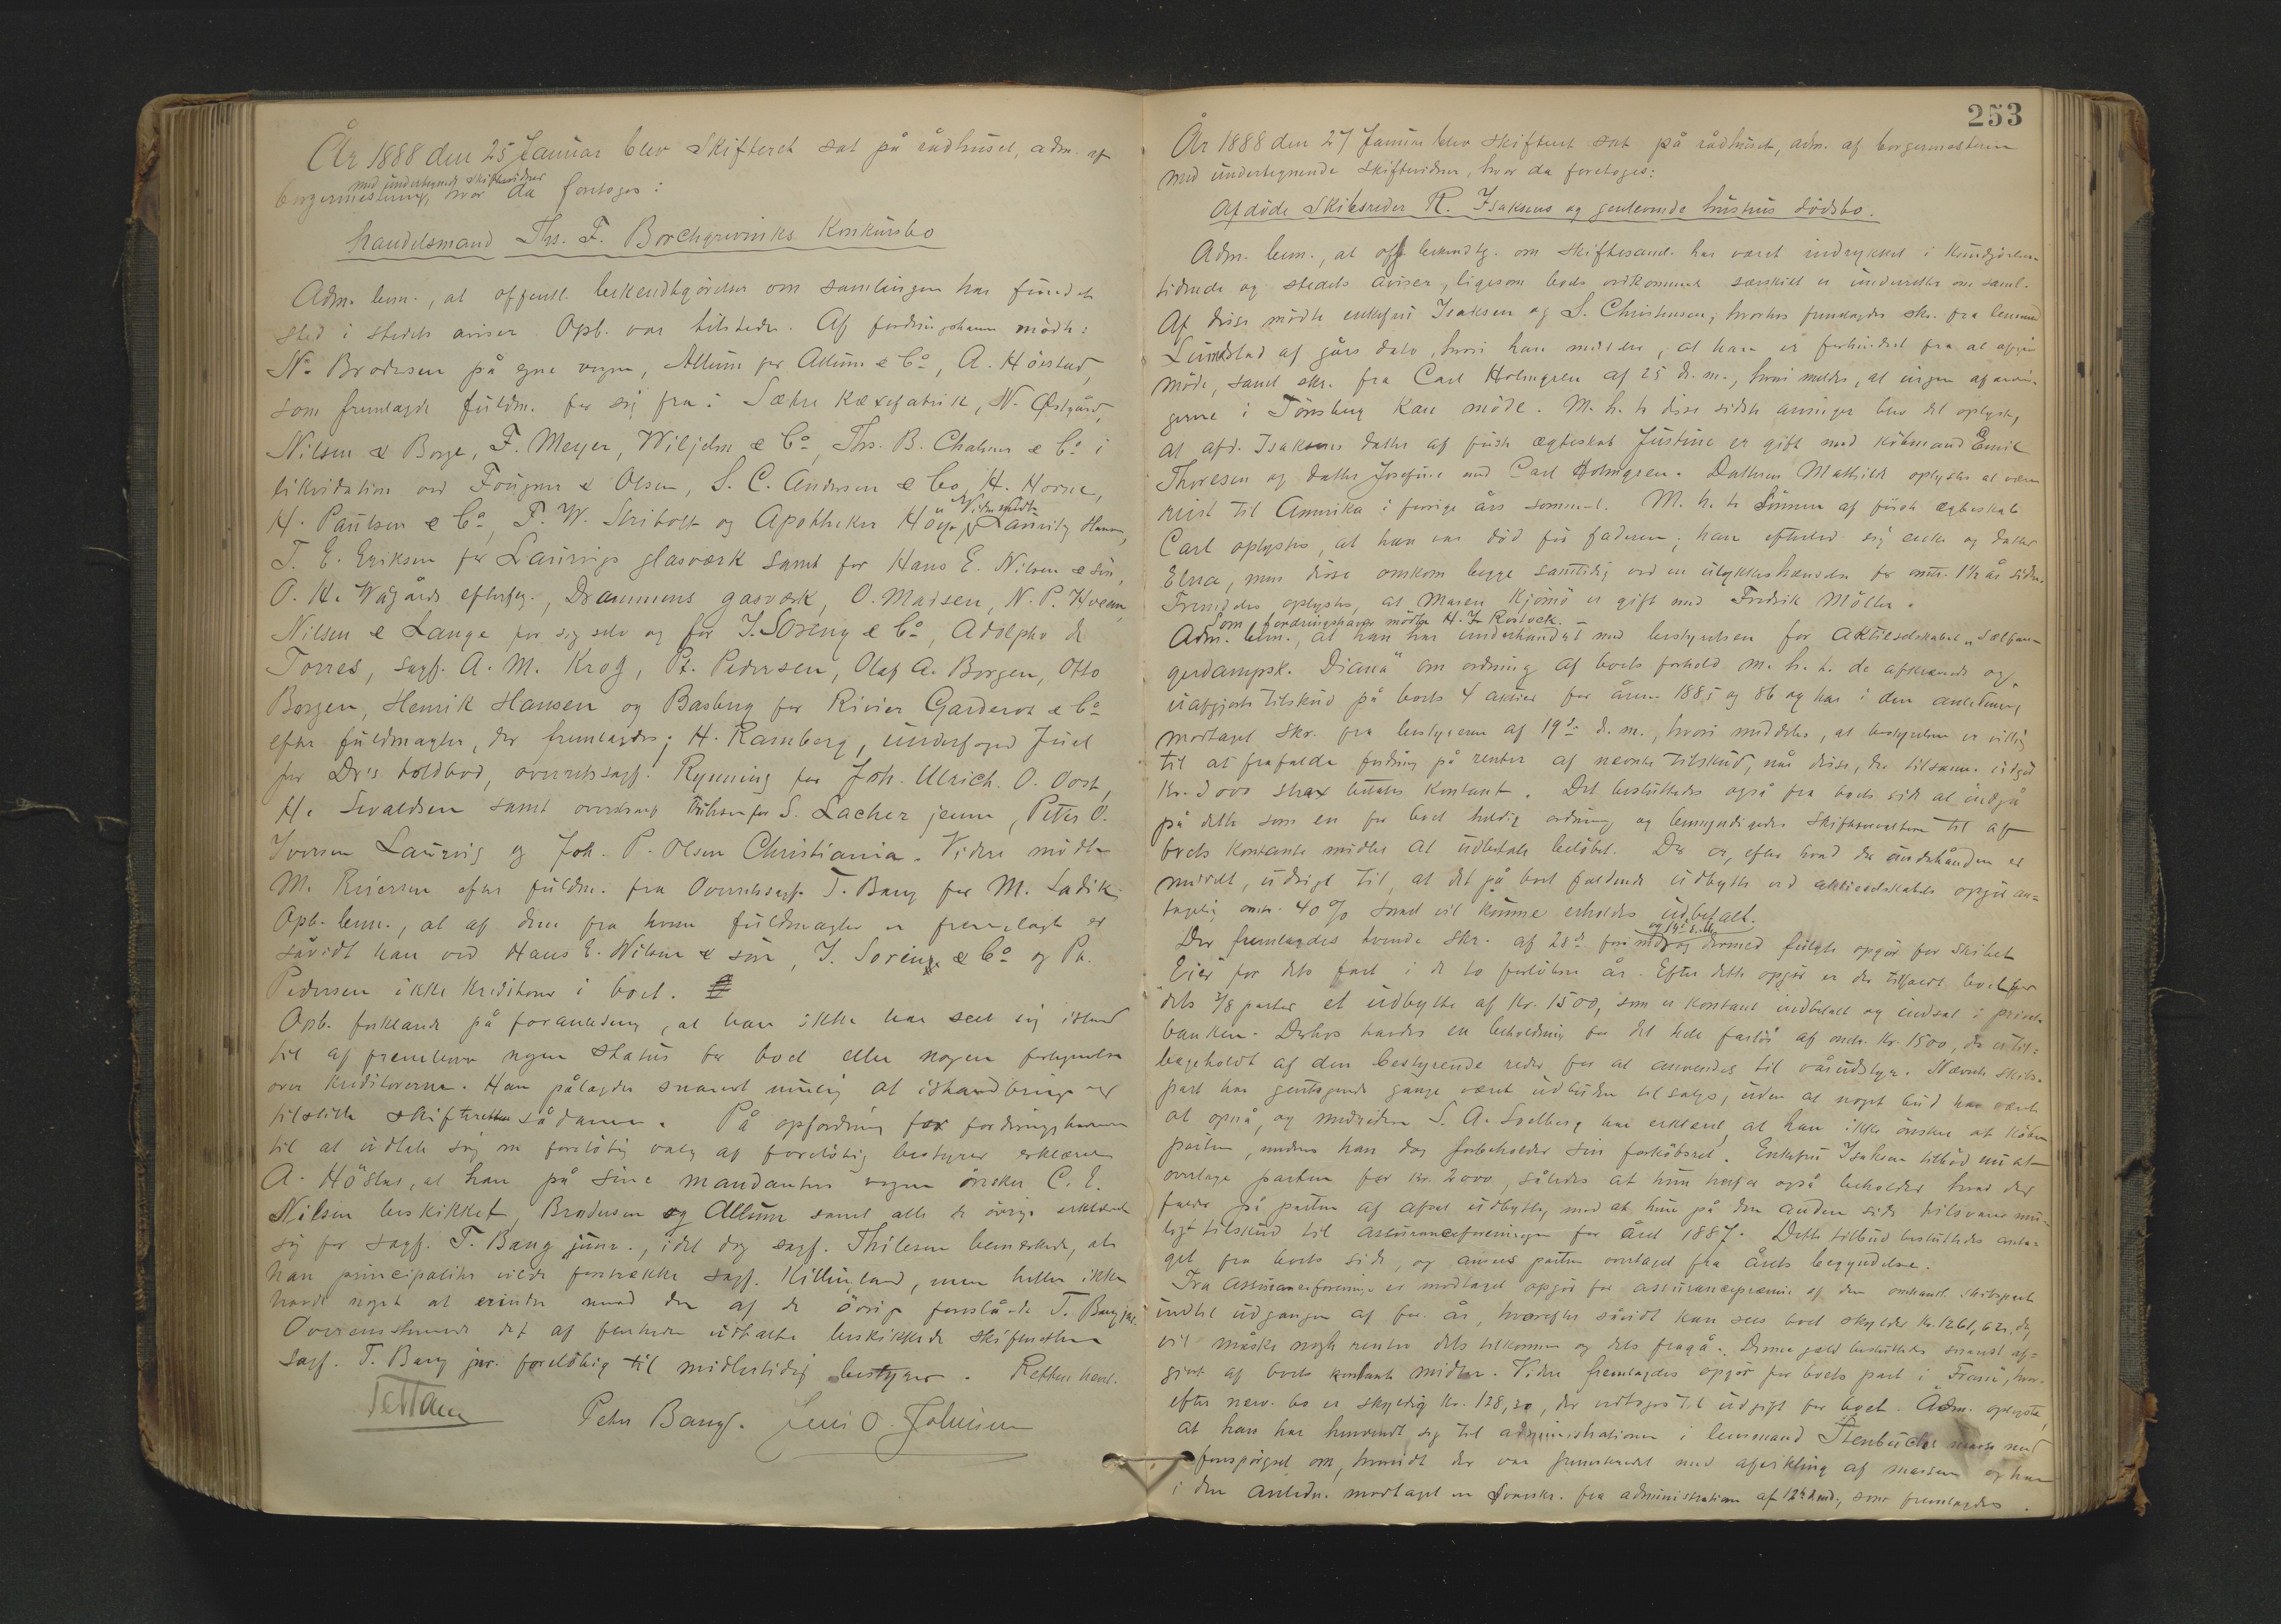 År 1888 den 25 Januar blev skifteret sat på rådhuset, adm. af
med undertegnede skiftevidner
borgermesteren, hvor da foretoges:
handelsmand Ths. F. Borchgrevinks Konkursbo
Adm. bem., at offentl. bekendtgörelse om samlingen har fundet
sted i stedets aviser. Opb. var tilstede. Af fordringshavere mödte:
N. Brodersen på egne vegne, Allum for Allum & Co, A. Höstad,
som fremlagde fuldm. for sig fra: Sætre Kæxfabrik, N. Østgård,
Nilsen & Borge, F. Meyer, Wiljelm & Co, Ths. B. Chalmer & Co i
likvidation ved Fougner & Olsen, S. C. Andersen & Co, H. Horne,
H. Paulsen & Co, P. W. og Apotheker Höyer, Lauritz Hansen,
T. E. Eriksen for Laurvigs glasværk samt for Hans E. Nilsen & sön,
O. H. Wågårds efterfg., Drammens gasværk, O. Madsen, N. P. Hveem,
Nilsen & Lange for sig selv og for J. Soreng & Co, Adolpho de
Torres, sagf. A. M. Krog, Pt. Pedersen, Olaf A. Borgen, Otto
Borgen, Henrik Hansen og Basberg for Rivier Garderot & Co
efter fuldmagter, der fremlagdes; H. Ramberg, underfoged Juel
for Dr's toldbod, overretssagf. Rynning for Joh. Ulrich. O. Oost,
H. Sevaldsen samt overretssagf. Thilesen for S. Lacher jenner, Peter O.
Iversen Laurvig og Joh. P. Olsen Christiania. Videre mödte
M. Iversen efter fuldm. fra Overretssagf. T. Bang for M. Ladik.
Opb. bem., at af dem fra hvem fuldmagter er fremlagt er
såvidt han ved Hans E. Nilsen & sön, J. Soreng & Co og Pt.
Pedersen ikke kreditorer i boet.
Opb. forklarede på foranledning, at han ikke har seet sig istand
til at fremlevere nogen status for boet eller nogen fortegnelse
over kreditorerne. Han pålagdes snarest mulig at istandbringe og
tilstille skifteretten sådanne. På opfordring for fordringshaverne
til at udtale sig om foreløbig valg af foreløbig bestyrer erklærede
A. Höstad, at han på sine mandanters vegne önsker C. E.
Nilsen beskikket, Brodersen og Allum samt alle de övrige erklærede
sig for sagf. T. Bang junr., idet dog sagf. Thilesen bemærkede, at
han principaliter vilde foretrække sagf. Killingland, men heller ikke
havde noget at erindre mod den af de övrige foreslåede T. Bang jnr.
Overensstemmende det af flerheden udtalte beskikkede skifteretten
sagf. T. Bang jnr. foreløbig til midlertidig bestyrer. Retten hævet.
Peter Bang. Jens O. Johnsen
253
År 1888 den 27 Januar blev skifteret sat på rådhuset, adm. af borgermesteren
med undertegnende skiftevidner, hvor da foretoges:
Afdöde Skibsreder R. Isaksens og genlevende hustrus dödsbo.
Adm. bem., at off. bekendtg. om skiftesaml. har været indrykket i Kundgjörelses-
tidende og stedets aviser, ligesom boets vedkommende særskilt er underrettet om saml.
Af disse mödte enkefru Isaksen og S. Christensen, hvorhos fremlagdes skr. fra lensmand
Lundblad af gårs dato, hvori han meddeler, at han er forhindret fra at afgive
möde, samt skr. fra Carl Holmgren af 25 d. m., hvori meldes, at ingen af arvin-
gerne i Tönsberg kan möde. M. h. t. disse sidste arvinger blev det oplyst,
at afd. Isaksens datter af förste ægteskab Justine er gift med köbmand Emil
Thoresen og datter Josefine med Carl Holmgren. Datteren Mathilde oplystes at være
reist til Amerika i forrige års sommer. M. h. t. sönnen af förste ægteskab
Carl oplystes, at han var död för faderen; han efterlod sig enke og datter
Elna, men disse omkom begge samtidig ved en ulykkeshændelse for omtr. 1½ år siden.
Fremdeles oplystes, at Maren Kjömö er gift med Fredrik Möller.
Som fordringshaver mödte H. J. Rostock. -
Adm. bem., at han har underhandlet med bestyrelsen for Aktieselskabet „Sælfan-
gerdampsk. Diana" om ordning af boets forhold m. h. t. de afkrævede og
uafgjorte tilskud på boets 4 aktier for årene 1885 og 86 og har i den anledning
modtaget skr. fra bestyreren af 19de d. m., hvori meddeles, at bestyrelsen er villig
til at frafalde fordring på renter af nævnte tilskud, når disse, der tilsamm. udgör
Kr. 3000 strax betales kontant. Det besluttedes også fra boets side at indgå
på dette som en for boet heldig ordning og bemyndigedes skifteforvalteren til af
boets kontante midler at udbetale belöbet. Der er, efter hvad der underhånden er
meddelt, udsigt til, at det på boet faldende udbytte ved aktieselskabets opgjör an-
tagelig omtr. 40 % snart vil kunne erholdes udbetalt.
og 19de d. M.
Der fremlagdes tvende skr. af 28de for. mdr. og dermed fulgte opgör for skibet
Eier for dets fart i de to forlöbne år. Efter dette opgör er der tilfaldt boet for
dets 3/8 parter et udbytte af Kr. 1500, som er kontant indbetalt og indsat i privat-
banken. Derhos havdes en beholdning for det hele fartöi af omtr. Kr. 1500, der er til-
bageholdt af den bestyrende reder for at anvendes til vårudstyr. Nævnte skibs-
part har gentagende gange været udbuden til salgs, uden at noget bud har været
at opnå, og medrederen S. A. Solberg har erklæret, at han ikke önsker at köbe
parten, medens han dog forbeholder sin forköbsret. Enkefru Isaksen tilböd nu at
overtage parten for Kr. 2000, således at hun herfor også beholder hvad der
falder på parten af afsat udbytte, mod at hun på den anden side tilsvarer mu-
ligt tilskud til assuranceforeningen for året 1887. Dette tilbud besluttedes anta-
get fra boets side, og ansees parten overtaget fra årets begyndelse.
Fra assuranceforeninge er modtaget opgör for assurancepræmie af den omhandl. skibspart
indtil udgangen af for. år, hvorefter såvidt kan sees boet skylder Kr. 1261,62, dog
vil måske nogle renter dels tilkomme og dels fragå. Denne gæld besluttedes snarest af-
gjort af boets kontante midler. Videre fremlagdes opgör for boets part i „Fram", hvor-
efter nævn. bo er skyldig Kr. 128,20, der vedtoges til udgift for boet. Adm. oplyste,
at han har henvendt sig til administrationen i lensmand Stenbuchs masse med
forespörgsel om, hvorvidt der var fremskredet med afvikling af massen og har
i den anledn. modtaget en svarskr. fra administrationen af 12te d. md., som fremlagdes.